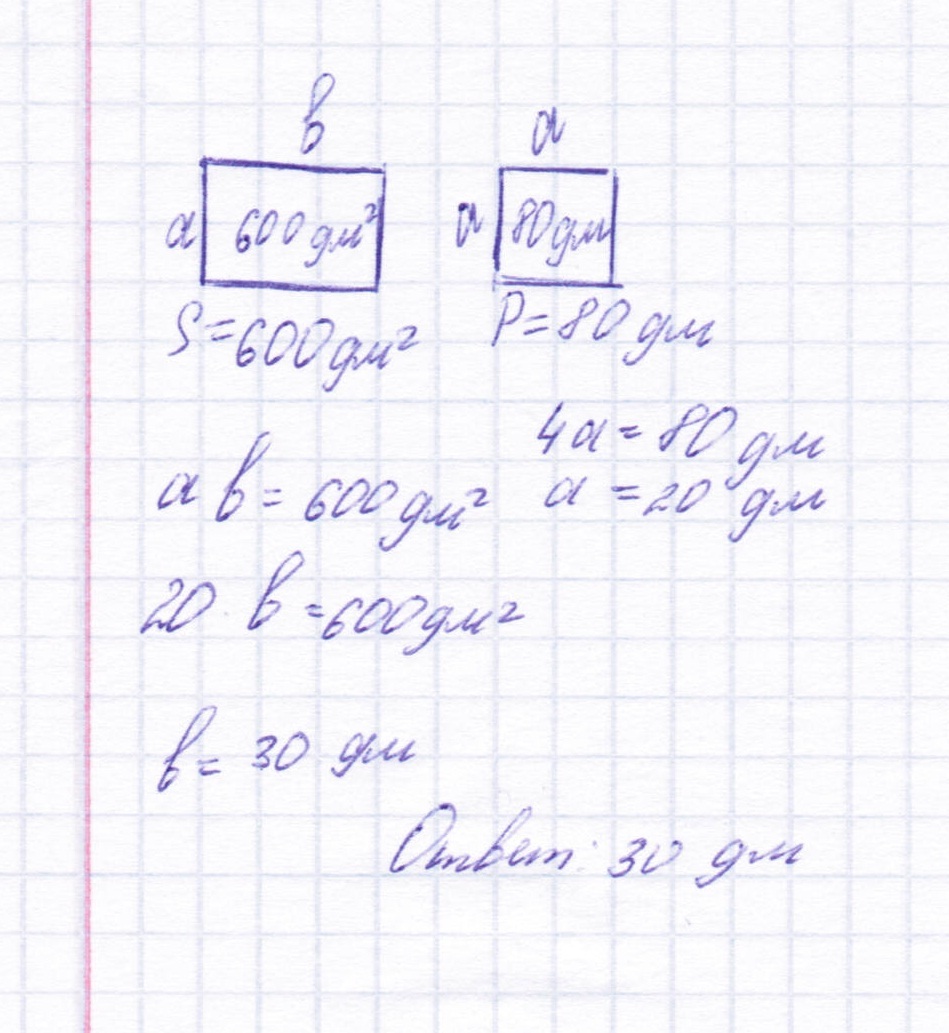 в
а
а 600 дм²
а 80 дм
S=600 дм²
P=80 дм
4а=80 дм
а в=600 дм²
а =20 дм
20 в=600 дм²
в= 30 дм
Ответ: 30 дм